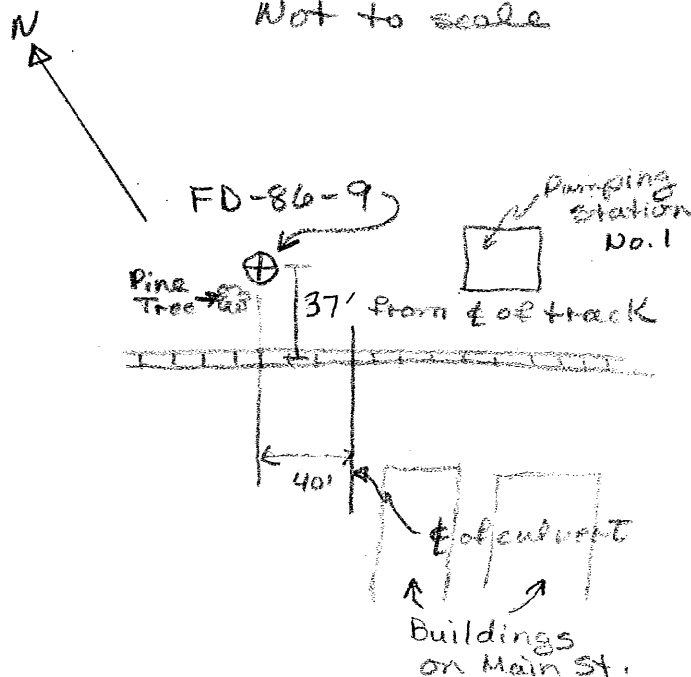 Not to scale
N
FD-86-9
Pumping
station
No. 1
Pine
Tree
37' from ℄ of track
40'
℄ of culvert
Buildings
on Main St.